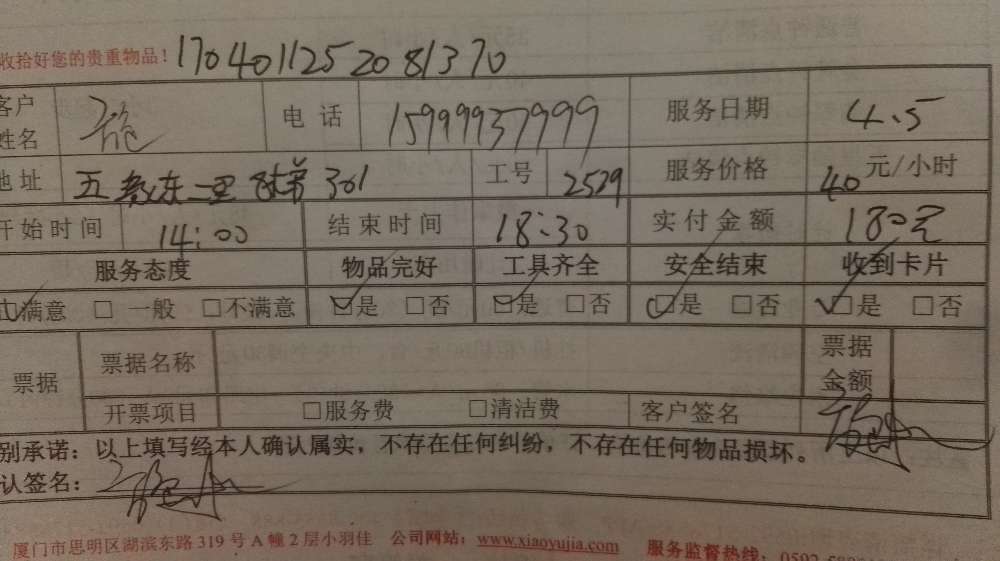 收拾好您的贵重物品！1704011252081370
客户姓名 电话 15999937999 服务日期 4.5
地址 五 东一里 301 工号 2529 服务价格 40 元/小时
开始时间 14:00 结束时间 18:30 实付金额 180元
服务态度 物品完好 工具齐全 安全结束 收到卡片
☑满意 □ 一般 □不满意 ☑是 □否 ☑是 □否 ☑是 □否 ☑是 □否
票据 票据名称 票据金额
开票项目 □服务费 □清洁费 客户签名
别承诺：以上填写经本人确认属实，不存在任何纠纷，不存在任何物品损坏。
认签名：
厦门市思明区湖滨东路 319 号 A 幢 2 层小羽佳 公司网站：www.xiaoyujia.com 服务监督热线：0592